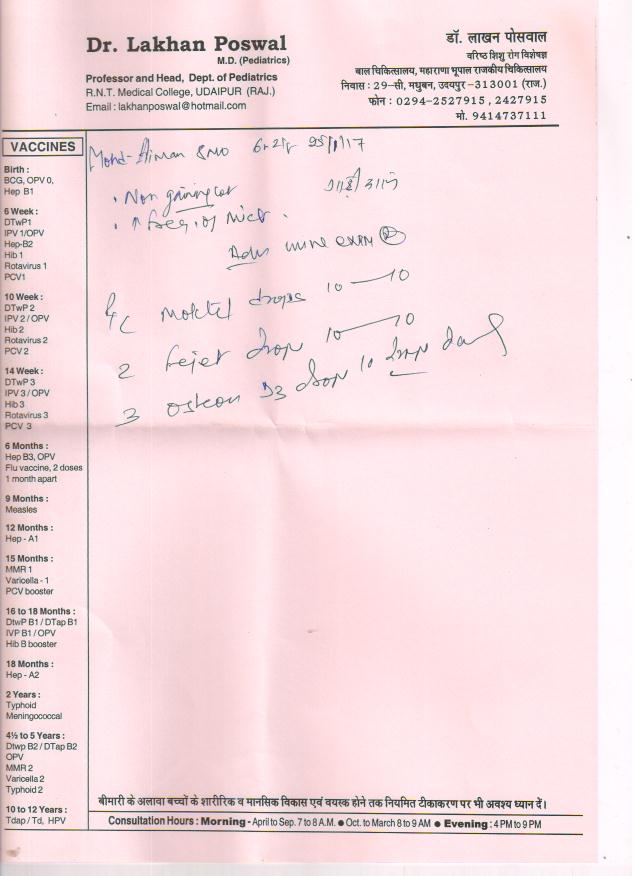 Dr. Lakhan Poswal
M.D. (Pediatrics)
Professor and Head, Dept. of Pediatrics
R.N.T. Medical College, UDAIPUR (RAJ.)
Email : lakhanposwal@hotmail.com
डॉ. लाखन पोसवाल
वरिष्ठ शिशु रोग विशेषज्ञ
बाल चिकित्सालय, महाराणा भूपाल राजकीय चिकित्सालय
निवास : 29-सी, मधुबन, उदयपुर -313001 (राज.)
फोन : 0294-2527915, 2427915
मो. 9414737111
VACCINES
Birth :
BCG, OPV 0,
Hep B1
6 Week :
DTwP1
IPV 1/OPV
Hep-B2
Hib 1
Rotavirus 1
PCV1
10 Week :
DTwP 2
IPV 2 / OPV
Hib 2
Rotavirus 2
PCV 2
14 Week :
DTwP 3
IPV 3 / OPV
Hib 3
Rotavirus 3
PCV 3
6 Months :
Hep B3, OPV
Flu vaccine, 2 doses
1 month apart
9 Months :
Measles
12 Months :
Hep - A1
15 Months :
MMR 1
Varicella - 1
PCV booster
16 to 18 Months :
DtwP B1 / DTap B1
IVP B1 / OPV
Hib B booster
18 Months :
Hep - A2
2 Years :
Typhoid
Meningococcal
4½ to 5 Years :
Dtwp B2 / DTap B2
OPV
MMR 2
Varicella 2
Typhoid 2
10 to 12 Years :
Tdap / Td, HPV
Mohd-
Non gaining wt
of Mict.
Adv urine exam
drops 10 — 10
2 drop 10 — 10
3 D3 drop 10 drop
बीमारी के अलावा बच्चों के शारीरिक व मानसिक विकास एवं वयस्क होने तक नियमित टीकाकरण पर भी अवश्य ध्यान दें।
Consultation Hours : Morning - April to Sep. 7 to 8 A.M. ● Oct. to March 8 to 9 AM ● Evening : 4 PM to 9 PM